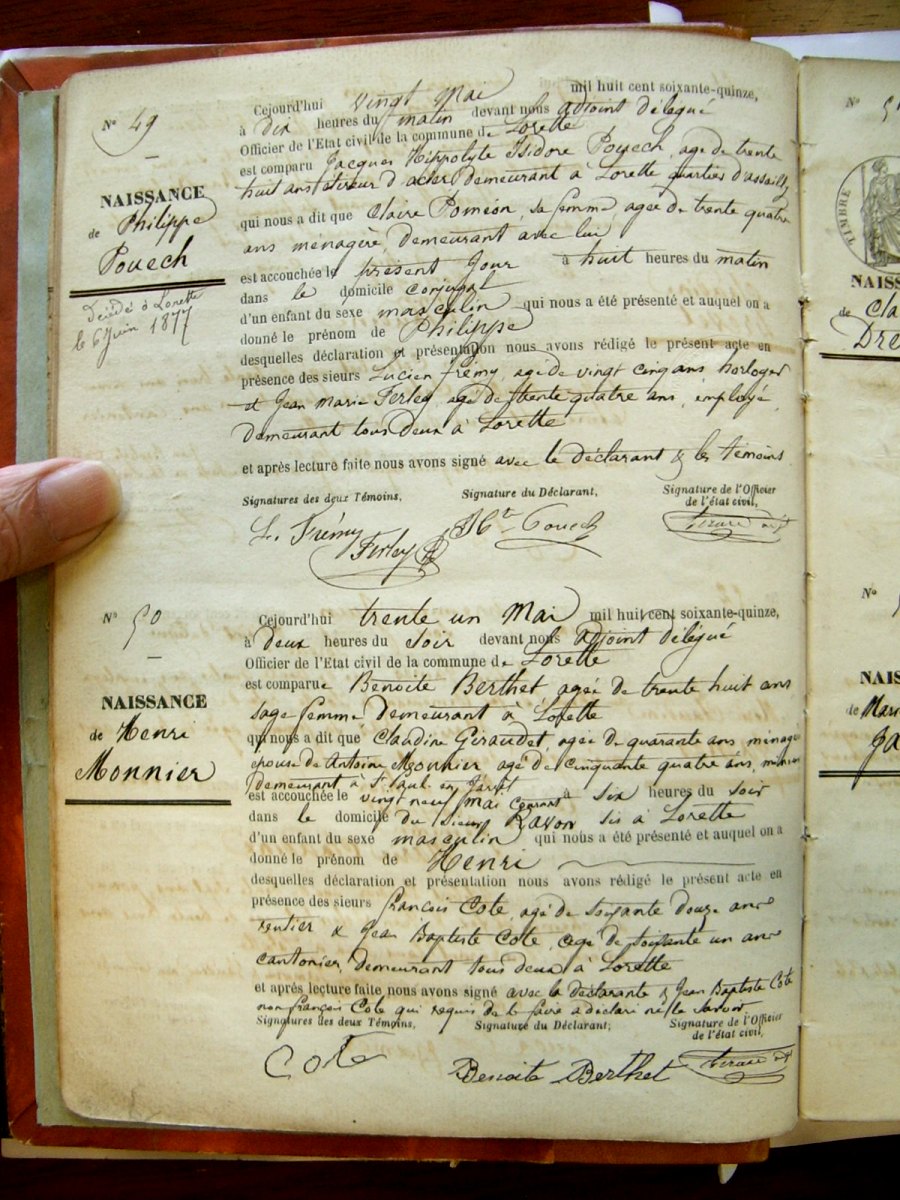 N° 49
NAISSANCE
de Philippe
Pouech
Décédé à Lorette
le 6 Juin 1877
Cejourd'hui vingt Mai mil huit cent soixante-quinze,
à dix heures du matin devant nous adjoint délégué
Officier de l'Etat civil de la commune de Lorette
est comparu Jacques Hippolyte Isidore Pouech, agé de trente
huit ans étireur d'acier demeurant à Lorette quartier d'assailly
qui nous a dit que Claire Poméon, sa femme agée de trente quatre
ans ménagère, demeurant avec lui
est accouchée le présent Jour à huit heures du matin
dans le domicile conjugal
d'un enfant du sexe masculin qui nous a été présenté et auquel on a
donné le prénom de Philippe
desquelles déclaration et présentation nous avons rédigé le présent acte en
présence des sieurs Lucien Frémy agé de vingt cinq ans horloger
et Jean Marie Ferley, agé de trente quatre ans, employé,
demeurant tous deux à Lorette
et après lecture faite nous avons signé avec le déclarant & les témoins
Signatures des deux Témoins, Signature du Déclarant, Signature de l'Officier
de l'état civil,
L. Frémy Ferley Hte Pouech
N° 50
NAISSANCE
de Henri
Monnier
Cejourd'hui trente un Mai mil huit cent soixante-quinze,
à deux heures du soir devant nous adjoint délégué
Officier de l'Etat civil de la commune de Lorette
est comparue Benoite Berthet agée de trente huit ans
sage femme, demeurant à Lorette
qui nous a dit que Claudine Giraudet, agée de quarante ans, ménagère
épouse de Antoine Monnier agé de cinquante quatre ans,
demeurant à St Paul en Jarret
est accouchée le vingt neuf Mai courant à six heures du soir
dans le domicile du sieur Ravon sis à Lorette
d'un enfant du sexe masculin qui nous a été présenté et auquel on a
donné le prénom de Henri
desquelles déclaration et présentation nous avons rédigé le présent acte en
présence des sieurs François Cote, agé de soixante douze ans
rentier & Jean Baptiste Cote, agé de soixante un ans
cantonier, demeurant tous deux à Lorette
et après lecture faite nous avons signé avec la déclarante & Jean Baptiste Cote
non François Cote qui requis de le faire a déclaré ne le savoir
Signatures des deux Témoins, Signature du Déclarant, Signature de l'Officier
de l'état civil,
Cote Benoite Berthet
N°
TIMBRE
NAISS
de Cla
Dre
N°
NAIS
de Mar
Ja